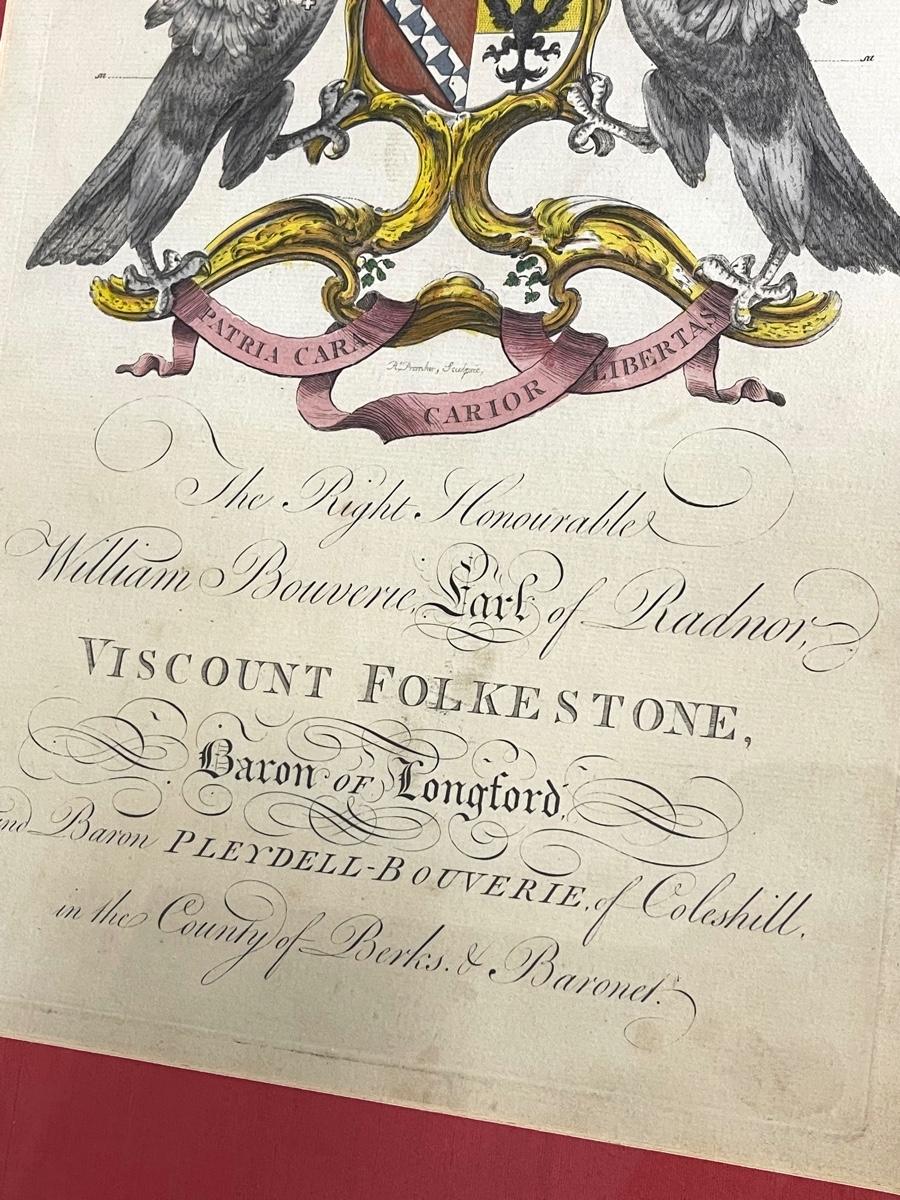 PATRIA CARA
CARIOR
LIBERTAS
Sculpsit,
The Right Honourable
William Bouverie, Earl of Radnor,
VISCOUNT FOLKESTONE,
Baron OF Longford,
and Baron PLEYDELL-BOUVERIE, of Coleshill,
in the County of Berks. & Baronet.